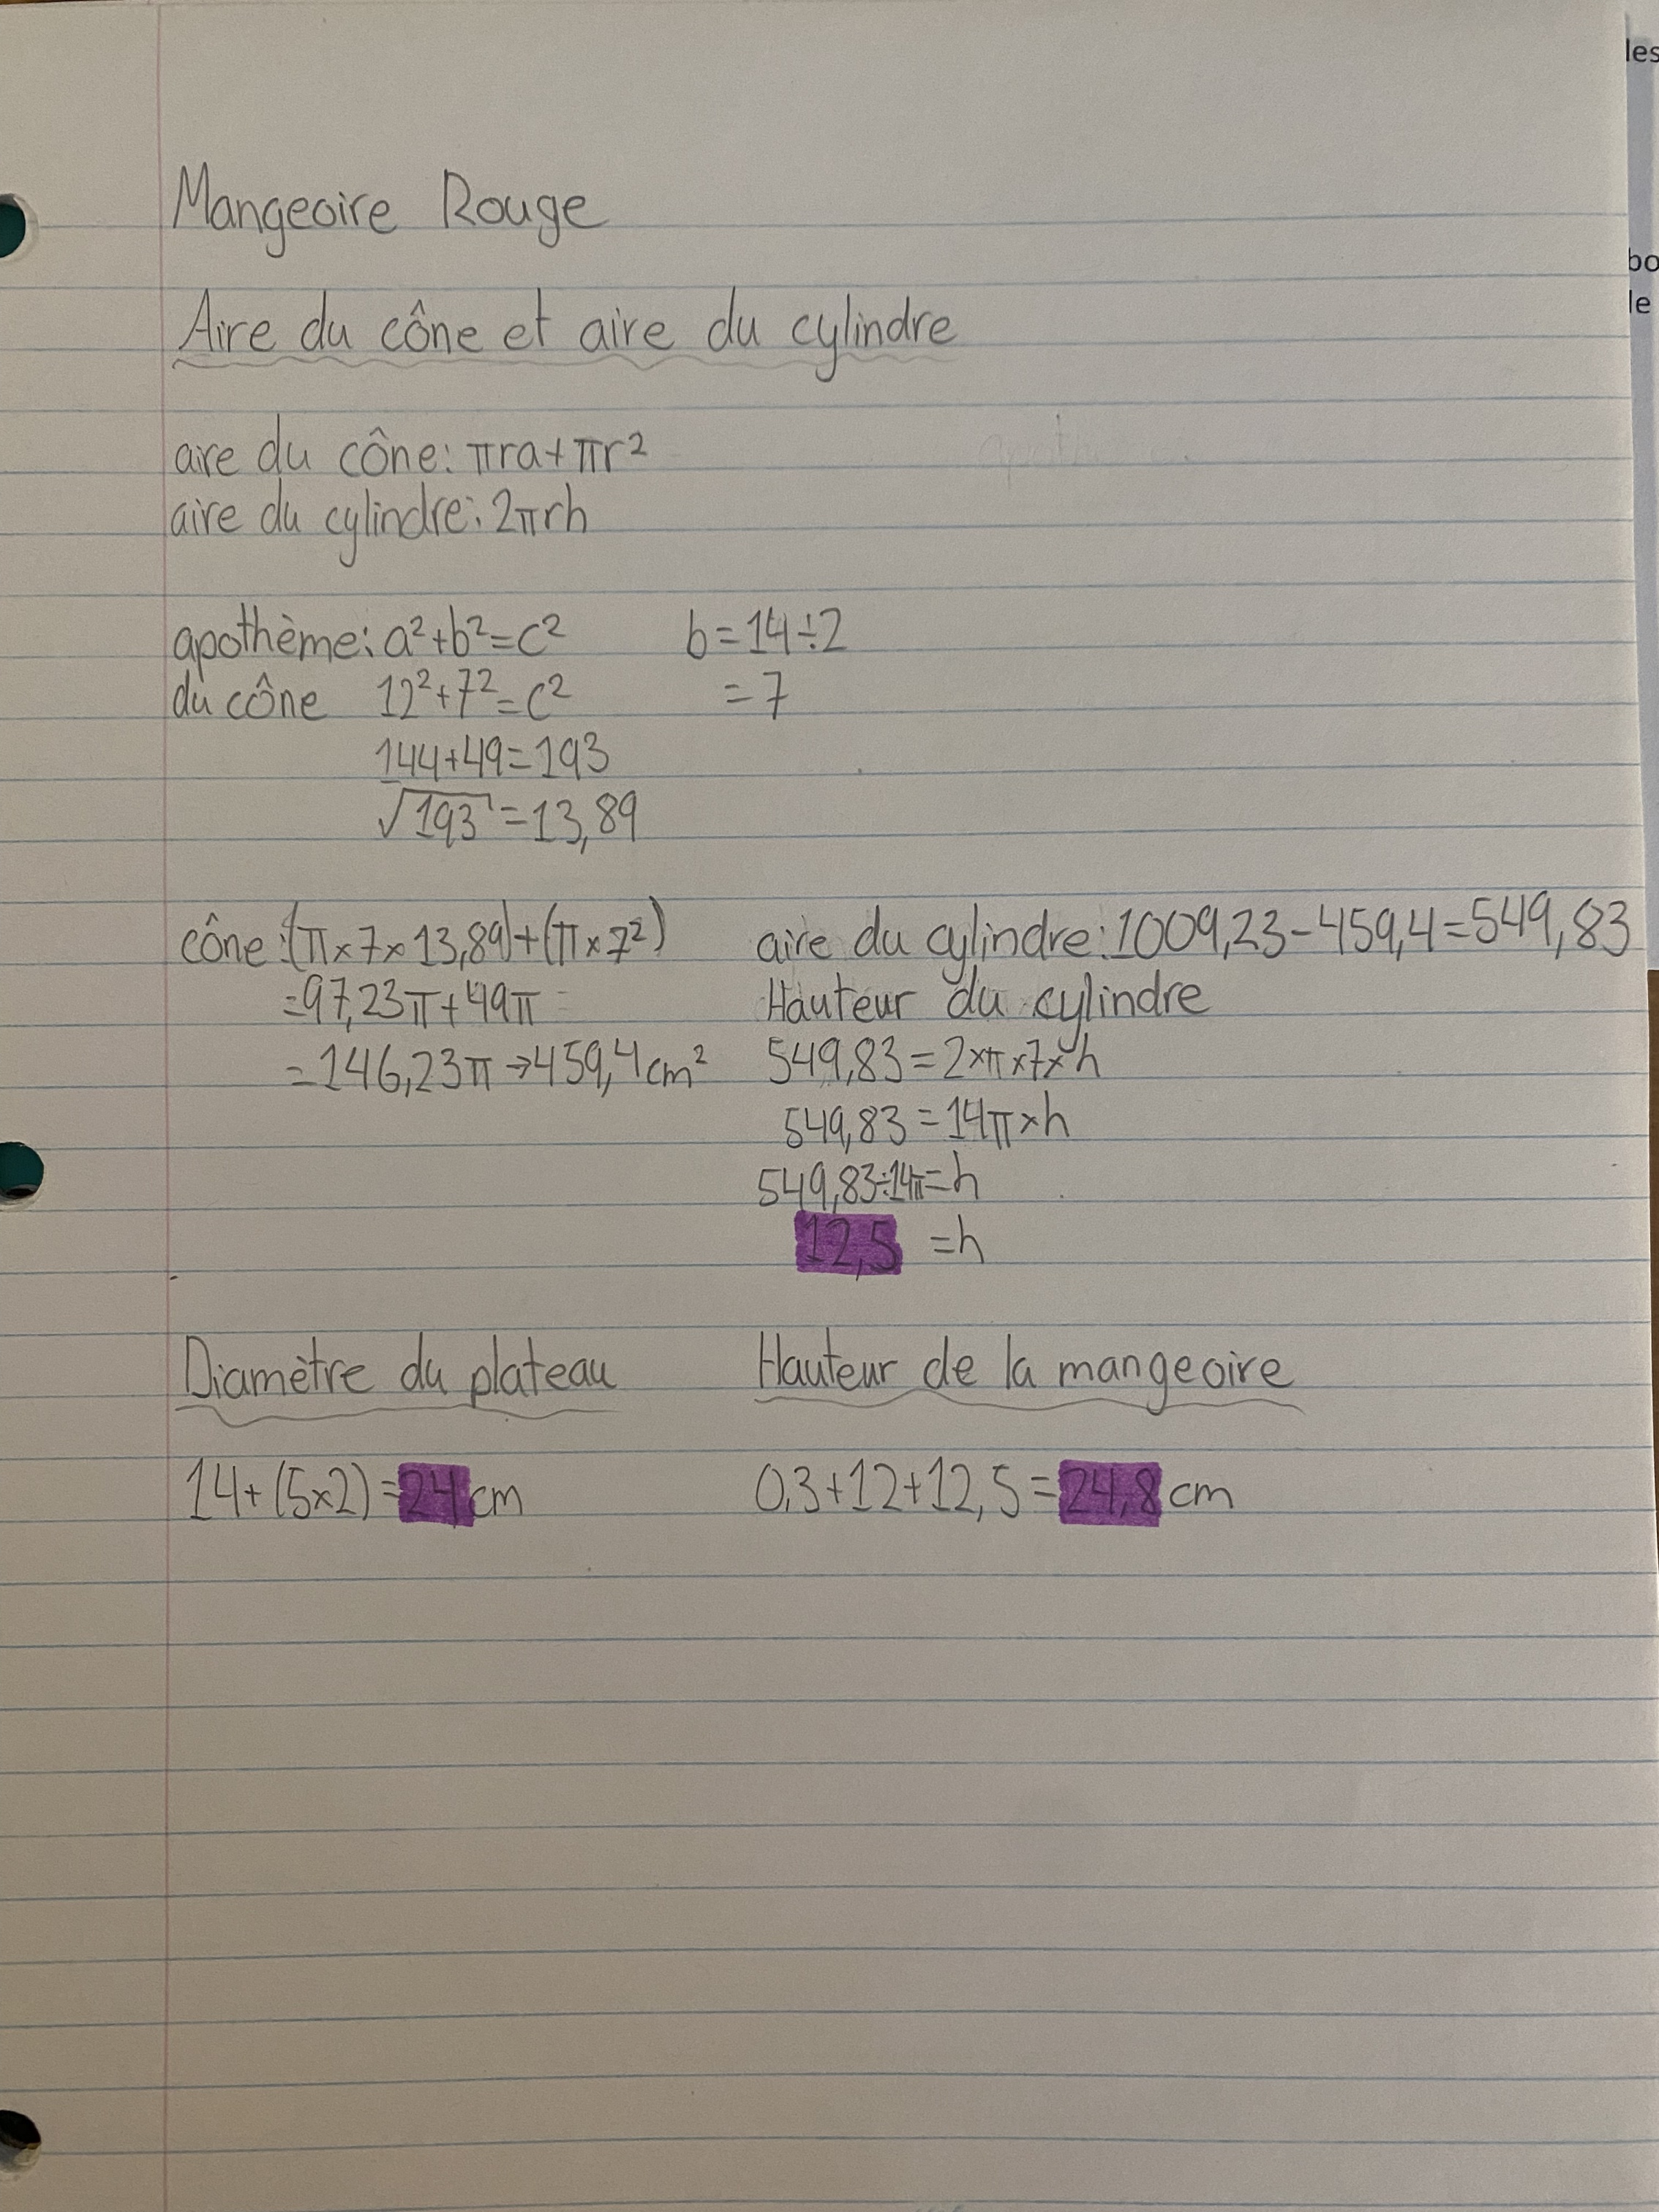 les
bo
le
Mangeoire Rouge
Aire du cône et aire du cylindre
aire du cône: πra+πr²
aire du cylindre: 2πrh
apothème: a²+b²=c² b=14÷2
du cône 12²+7²=c² =7
144+49=193
√193=13,89
cône:(π×7×13,89)+(π×7²)
=97,23π+49π
=146,23π→459,4cm²
aire du cylindre:1009,23-459,4=549,83
Hauteur du cylindre
549,83=2×π×7×h
549,83=14π×h
549,83÷14π=h
12,5 =h
Diamètre du plateau
14+(5×2)=24cm
Hauteur de la mangeoire
0,3+12+12,5=24,8cm